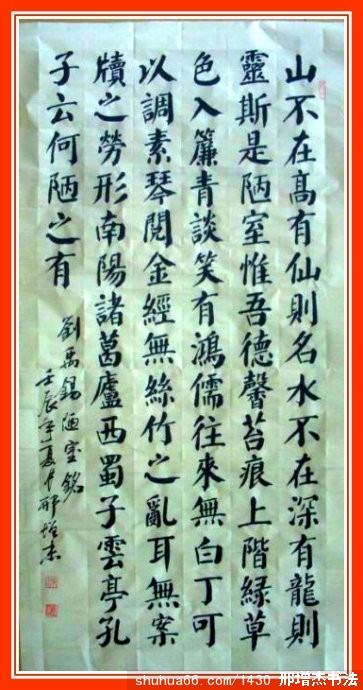 山不在髙有仙則名水不在深有龍則
靈斯是陋室惟吾德馨苔痕上階緑草
色入簾青談笑有鴻儒往來無白丁可
以調素琴閲金經無絲竹之亂耳無案
牘之勞形南陽諸葛廬西蜀子雲亭孔
子云何陋之有
劉禹錫陋室銘
壬辰年夏邢增杰
shuhua66.com/1430 邢增杰书法